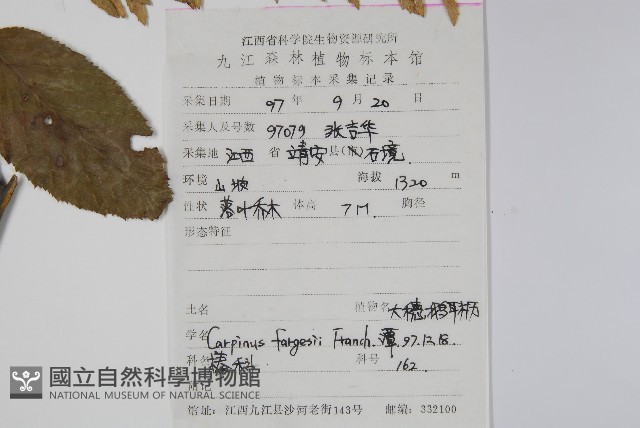 江西省科学院生物资源研究所
九江森林植物标本馆
植物标本采集记录
采集日期 97 年 9 月 20 日
采集人及号数 97079 张吉华
采集地 江西 省 靖安 县(市) 石境.
环境 山坡 海拔 1320 m
性状 落叶乔木 体高 7M. 胸径
形态特征
土名 植物名 大穗鹅耳枥
学名 Carpinus fargesii Franch. 潭.97.12.18.
科名 榛科. 科号 162.
附记
國立自然科學博物館
NATIONAL MUSEUM OF NATURAL SCIENCE
馆址:江西九江县沙河老街143号 邮编:332100